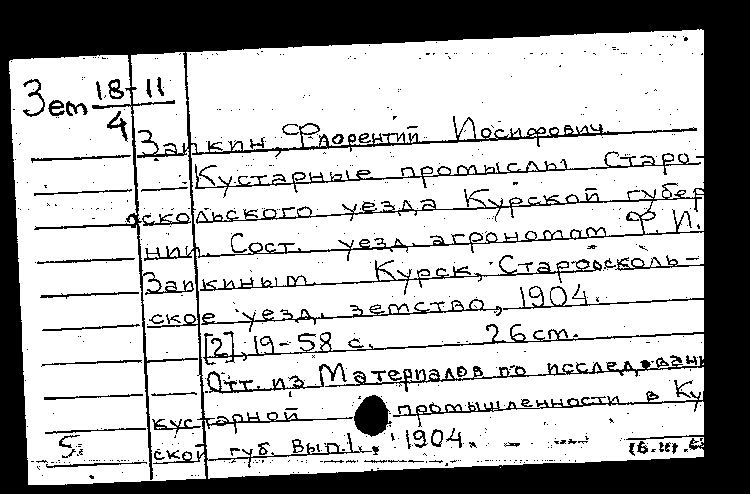 Зет 18-11
4
Запкин, Флорентий Иосифович
Кустарные промыслы Старо-
оскольского уезда Курской губер
нии. Сост. уезд. агрономом Ф. И.
Запкиным Курск, Староосколь-
ское уезд. земство, 1904.
[2], 19-58 с. 26 cm.
Отт. из Материалов по исследовани
кустарной промышленности в Ку
ской губ. Вып. 1., 1904.
S.